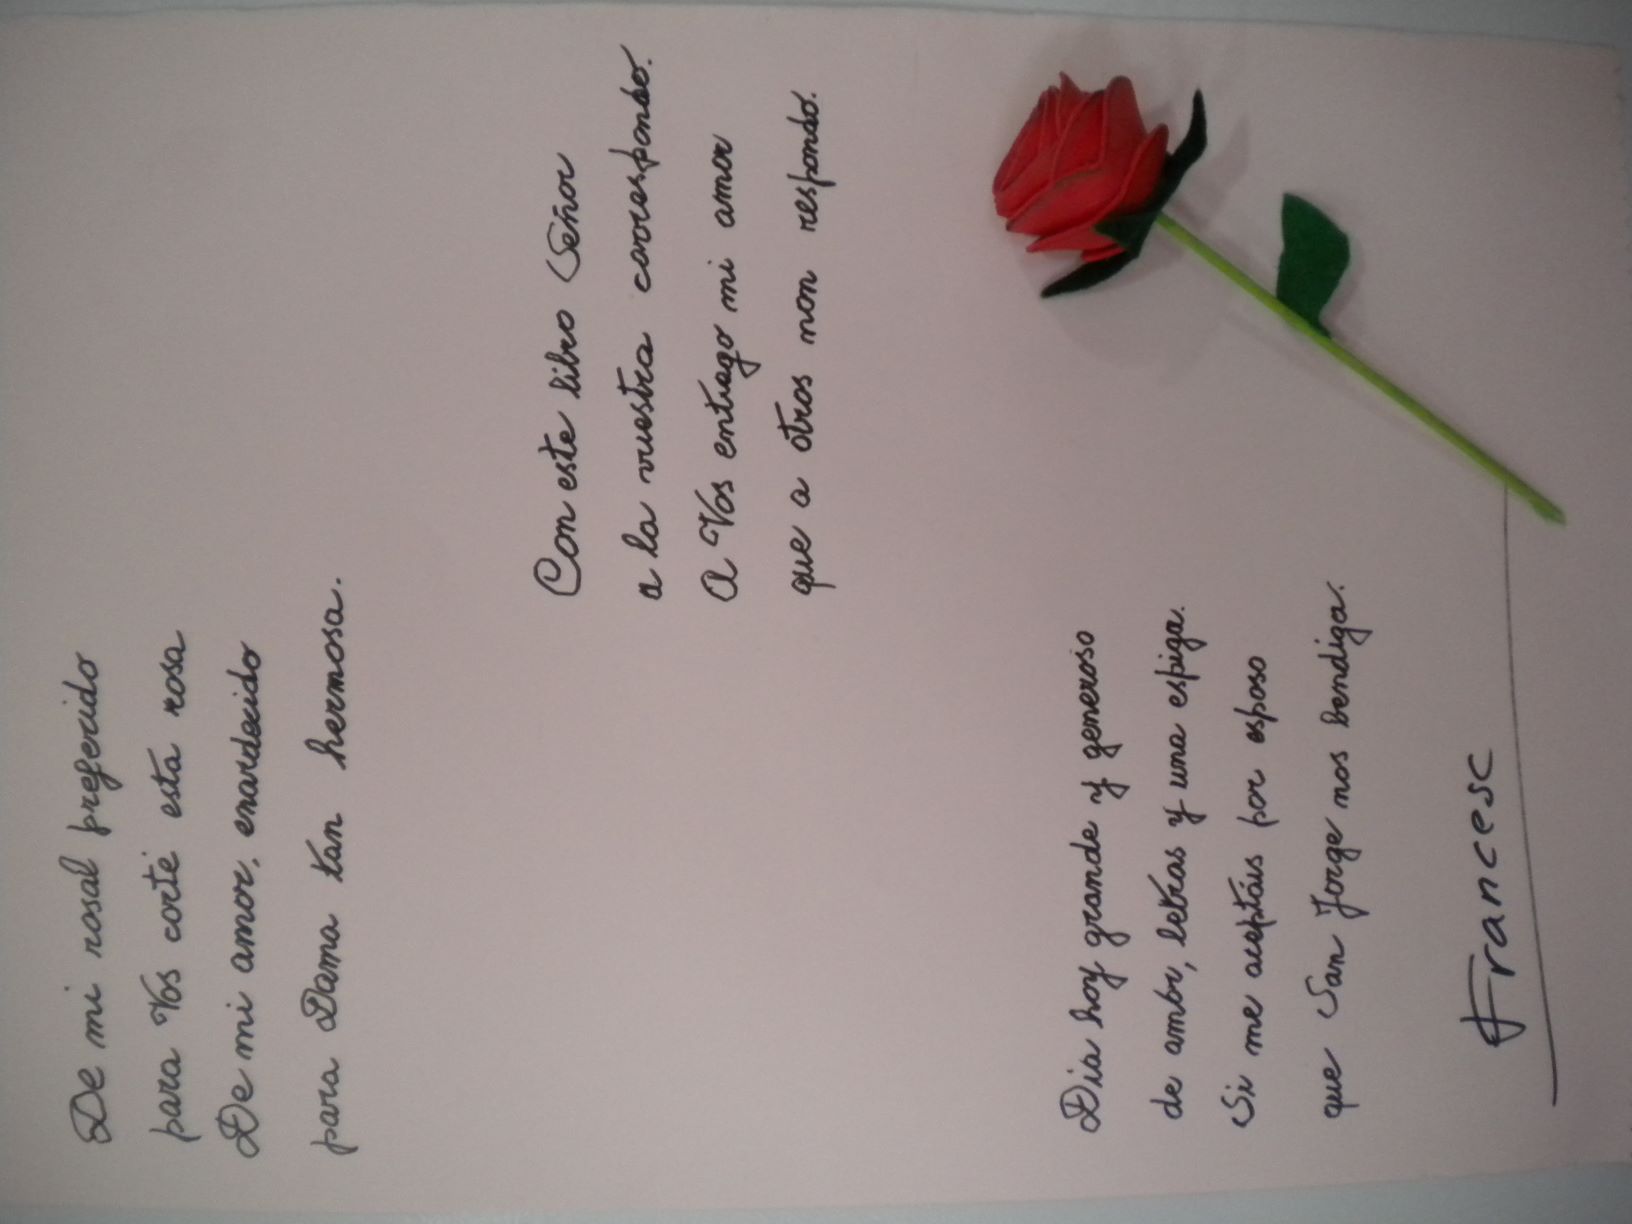 De mi rosal preferido
para Vos corté esta rosa
De mi amor, enardecido
para Dama tan hermosa.
Con este libro Señor
a la vuestra correspondo.
A Vos entrego mi amor
que a otros non respondo.
Dia hoy grande y generoso
de amor, letras y una espiga.
Si me aceptáis por esposo
que San Jorge nos bendiga.
Francesc